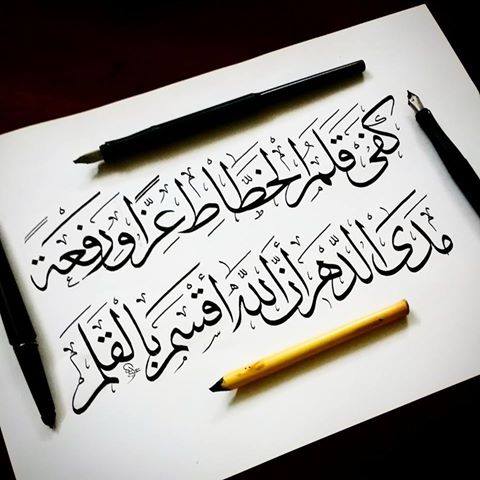 كفى قلم الخطاط عزًّا ورفعة
مدى الدهر أنّ الله أقسم بالقلم